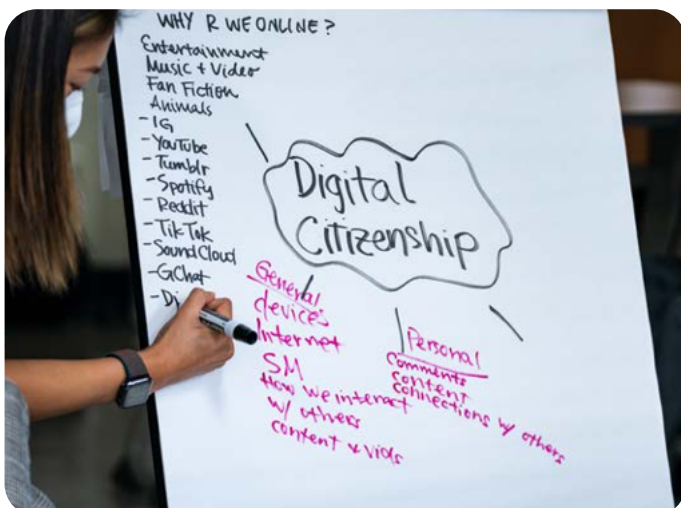 WHY R WE ONLINE?
Entertainment
Music + Video
Fan Fiction
Animals
- IG
- YouTube
- Tumblr
- Spotify
- Reddit
- TikTok
- SoundCloud
- GChat
- Di
Digital
Citizenship
General
devices
Internet
SM
How we interact
w/ others
content + vids
Personal
Comments
content
connections w/ others